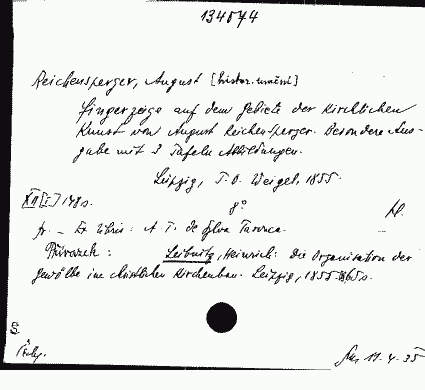 134574
Reichensperger, August [histor. umění]
Fingerzeige auf dem Gebiete der kirchlichen
Kunst von August Reichensperger. Besondere Aus-
gabe mit 3 Tafeln Abbildungen.
Leipzig, T. O. Weigel, 1855.
XII 148 s.
8°
fr. - Ex libris: A. T. de Sylva Tarouca.
Přívazek:
Leibnitz, Heinrich: Die Organisation der
Gewölbe im christlichen Kirchenbau. Leipzig, 1855. s.
S.
11. 4. 35